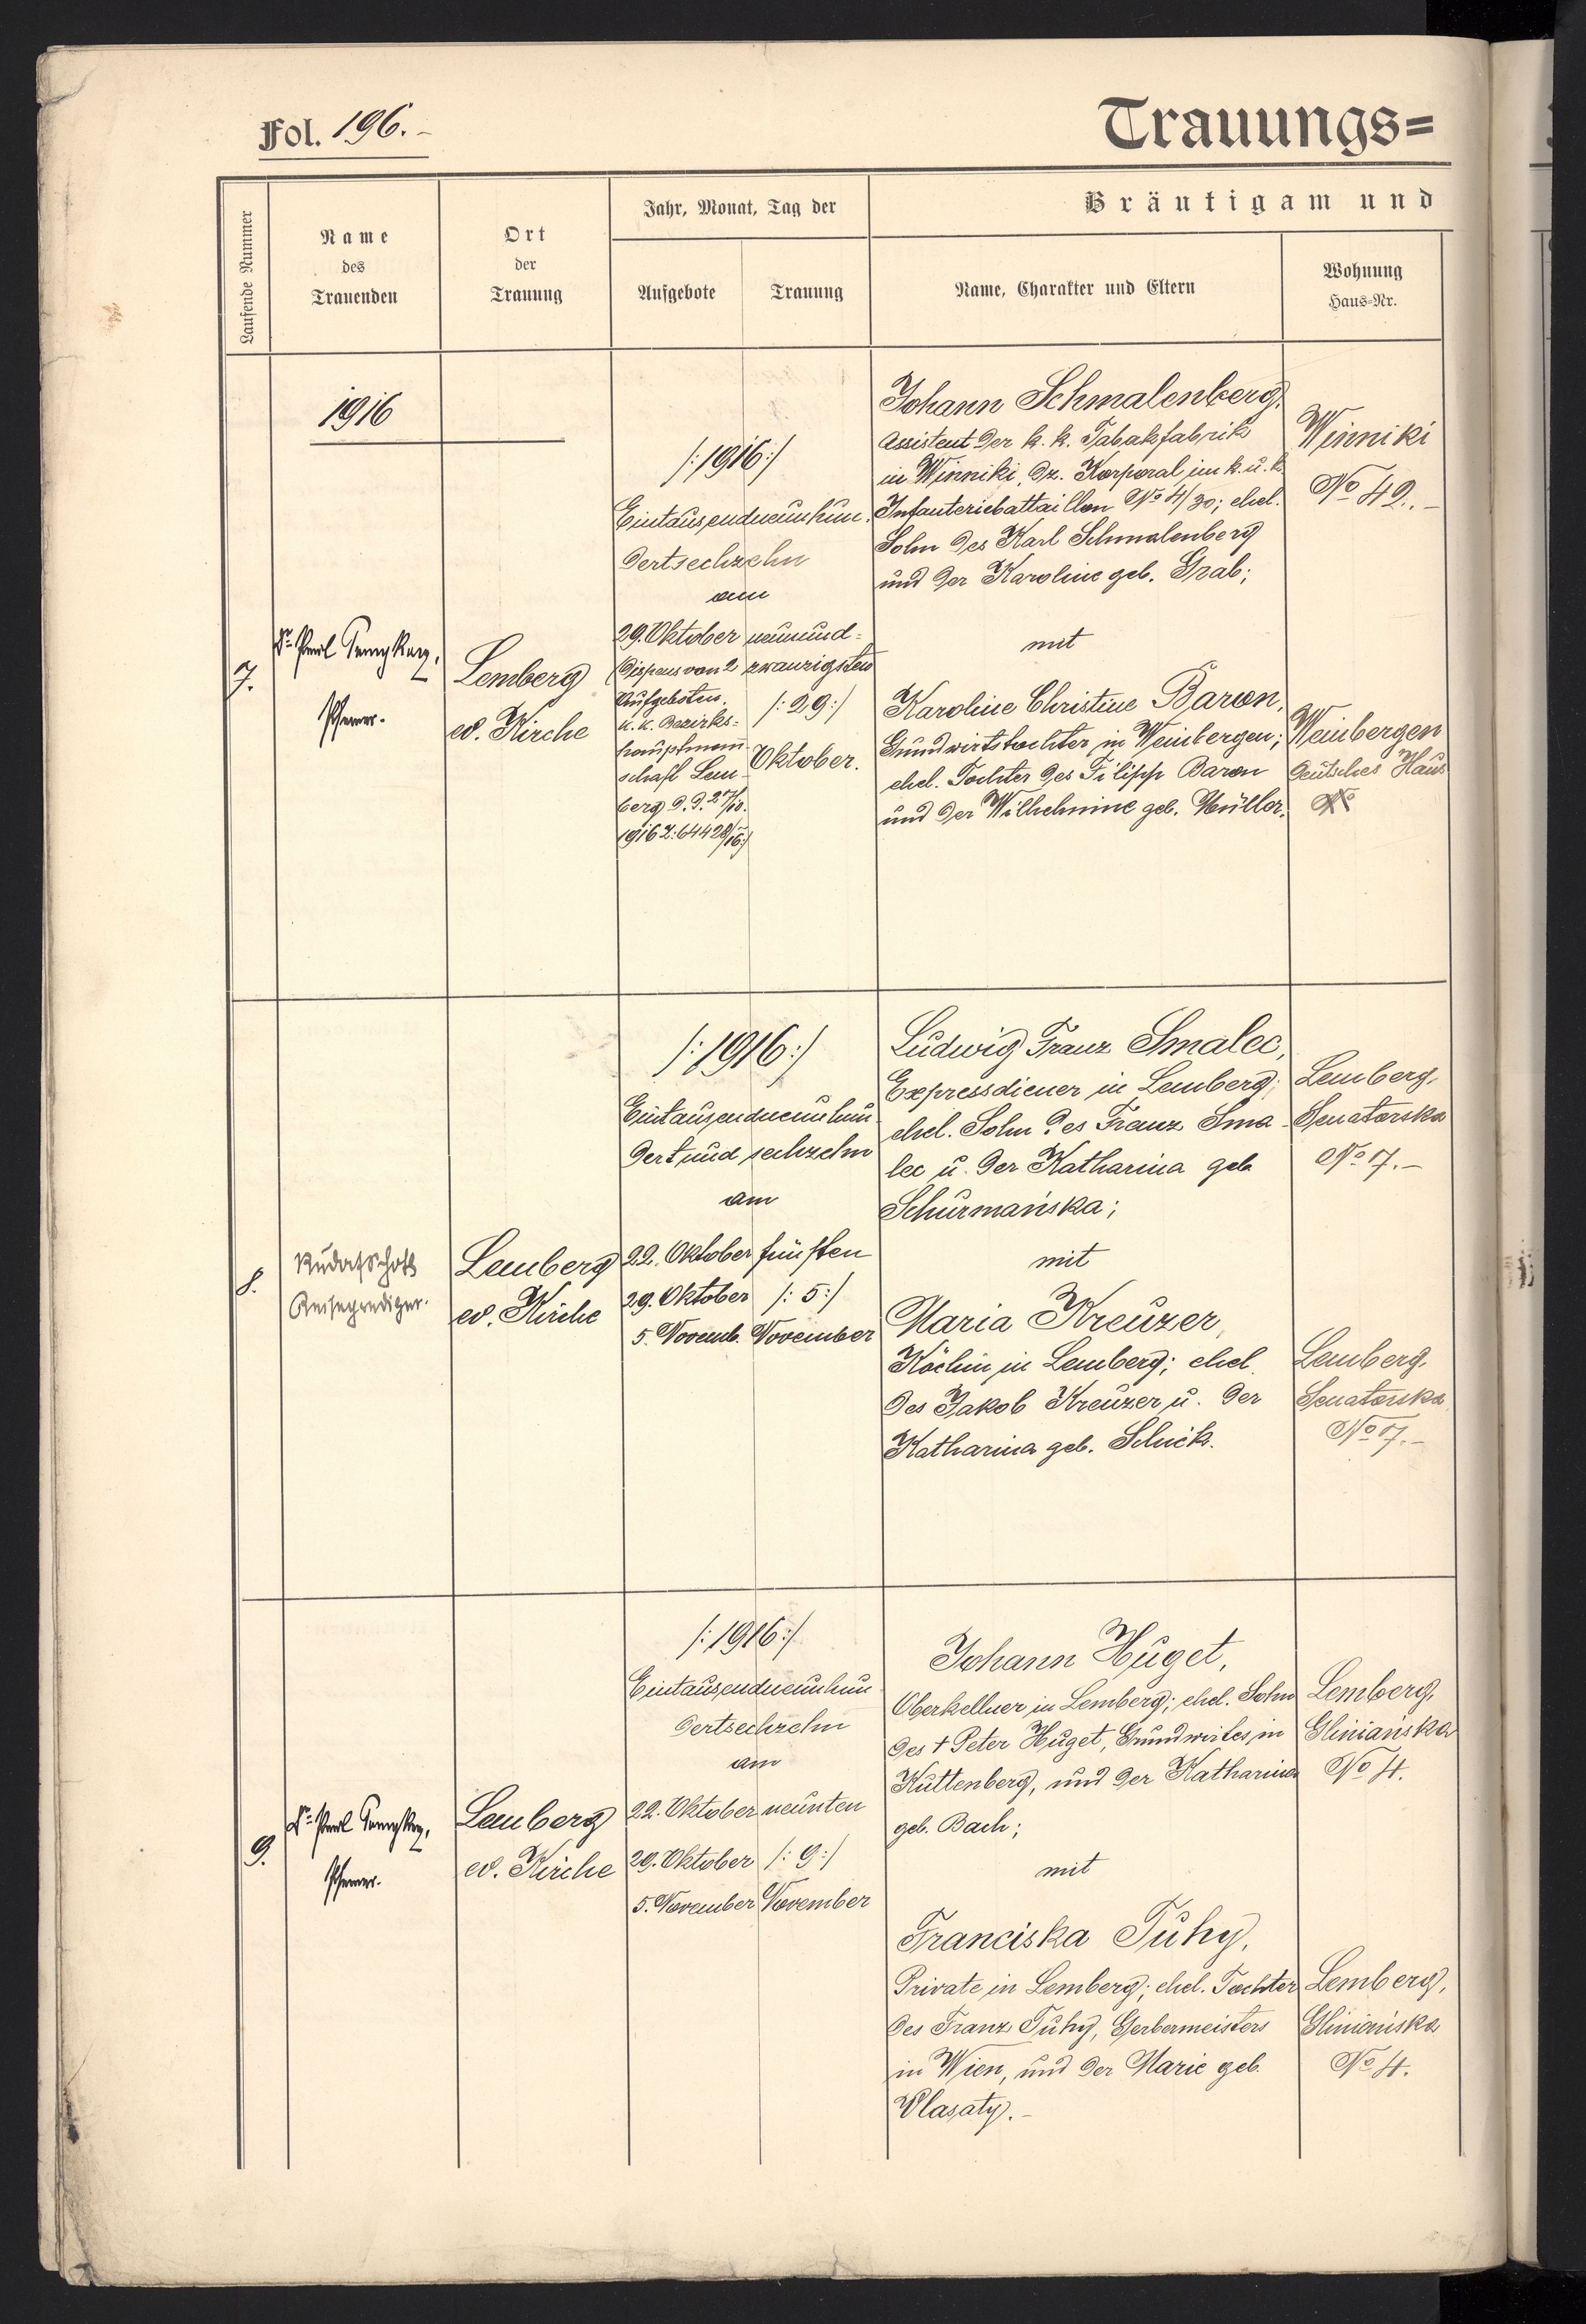 Fol. 196.-
Trauungs=
Laufende Nummer
Name
des
Trauenden
Ort
der
Trauung
Jahr, Monat, Tag der
Aufgebote
Trauung
Bräutigam und
Name, Charakter und Eltern
Wohnung
Haus-Nr.
1916
7.
Dr. Paul
Pfarrer.
Lemberg
ev. Kirche
/:1916:/
Eintausendneunhun-
dertsechzehn
am
29. Oktober
(Dispens von 2
Aufgeboten,
k. k. Bezirks=
hauptmann-
schaft Lem-
berg d.d. 27/10.
1916 Z: 64428/16:)
neunund=
zwanzigsten
/: 29:/
Oktober.
Johann Schmalenberg,
Assistent der k. k. Tabakfabrik
in Winniki, dz. Korporal im k. u. k.
Infanteriebattaillon No 4/30; ehel.
Sohn des Karl Schmalenberg
und der Karoline geb. Grab;
mit
Karoline Christine Baron,
Grundwirtstochter in Weinbergen;
ehel. Tochter des Filipp Baron
und der Wilhelmine geb. Müller.
Winniki
No 49.-
Weinbergen
Deutsches Haus
No
8.
Rudolf Schott
Reiseprediger.
Lemberg
ev. Kirche
/:1916:/
Eintausendneunhun-
dert und sechzehn
am
22. Oktober
29. Oktober
5. Novemb.
fünften
/: 5:/
November
Ludwig Franz Smalec,
Expressdiener in Lemberg;
ehel. Sohn des Franz Sma-
lec u. der Katharina geb
Schurmańska;
mit
Maria Kreuzer,
Köchin in Lemberg; ehel.
des Jakob Kreuzer u. der
Katharina geb. Schick.
Lemberg,
Senatorska
No 7.-
Lemberg,
Senatorska
No 7.-
9.
Dr. Paul
Pfarrer.
Lemberg
ev. Kirche
/:1916:/
Eintausendneunhun
dertsechzehn
am
22. Oktober
29. Oktober
5. November
neunten
/: 9:/
November
Johann Huget,
Oberkellner in Lemberg; ehel. Sohn
des † Peter Huget, Grundwirtes in
Kuttenberg, und der Katharina
geb. Bach;
mit
Franciska Tuhy,
Private in Lemberg; ehel. Tochter
des Franz Tuhy, Gerbermeisters
in Wien, und der Marie geb.
Vlasaty.-
Lemberg,
Gliniańska
No 4.
Lemberg,
Gliniańska
No 4.